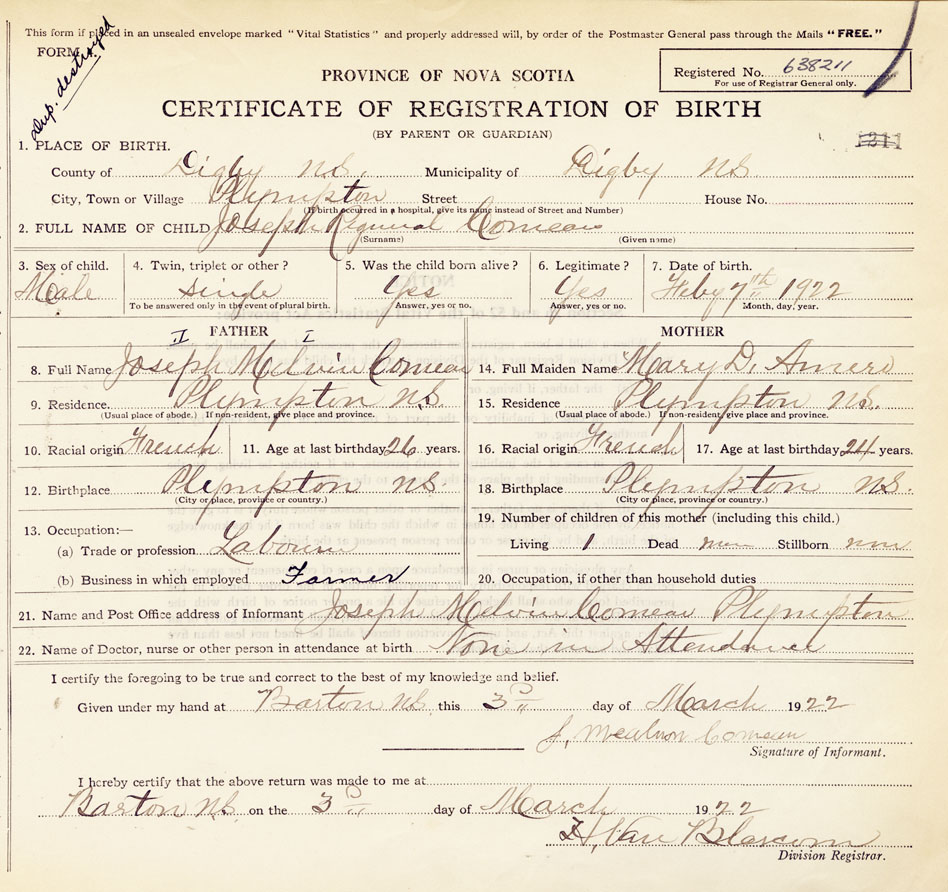 This form if placed in an unsealed envelope marked "Vital Statistics" and properly addressed will, by order of the Postmaster General pass through the Mails "FREE."
FORM
Dup. destroyed
Registered No. 638211
For use of Registrar General only.
PROVINCE OF NOVA SCOTIA
CERTIFICATE OF REGISTRATION OF BIRTH
(BY PARENT OR GUARDIAN)
1211
1. PLACE OF BIRTH.
County of Digby N.S. Municipality of Digby N.S.
City, Town or Village Plympton Street House No.
(If birth occurred in a hospital, give its name instead of Street and Number)
2. FULL NAME OF CHILD Joseph Comeau
(Surname) (Given name)
3. Sex of child. 4. Twin, triplet or other? 5. Was the child born alive? 6. Legitimate? 7. Date of birth.
Male Single Yes Yes Feby 7th 1922
To be answered only in the event of plural birth. Answer, yes or no. Answer, yes or no. Month, day, year.
FATHER MOTHER
II I
8. Full Name Joseph Melvin Comeau 14. Full Maiden Name Mary D. Amero
9. Residence Plympton N.S. 15. Residence Plympton N.S.
(Usual place of abode.) If non-resident, give place and province. (Usual place of abode.) If non-resident, give place and province.
10. Racial origin French 11. Age at last birthday 26 years. 16. Racial origin French 17. Age at last birthday 24 years.
12. Birthplace Plympton N.S. 18. Birthplace Plympton N.S.
(City or place, province or country.) (City or place, province or country.)
13. Occupation:— 19. Number of children of this mother (including this child.)
(a) Trade or profession Labourer Living 1 Dead Stillborn
(b) Business in which employed Farmer 20. Occupation, if other than household duties
21. Name and Post Office address of Informant Joseph Melvin Comeau Plympton
22. Name of Doctor, nurse or other person in attendance at birth None in Attendance
I certify the foregoing to be true and correct to the best of my knowledge and belief.
Given under my hand at Barton N.S. this 3 day of March 1922
J. Comeau
Signature of Informant.
I hereby certify that the above return was made to me at
Barton N.S. on the 3 day of March 1922
H. Van Blarcom
Division Registrar.